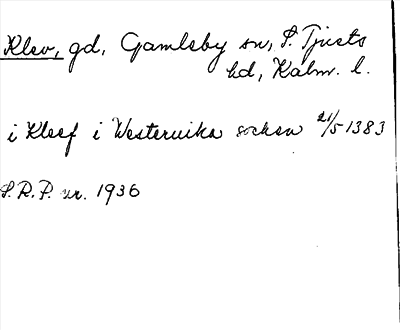 Klev, gd, Gamleby sn, S. Tjusts
hd, Kalm. l.
i Kleef i Westeruika socken 21/5 1383
S.R.P. nr. 1936